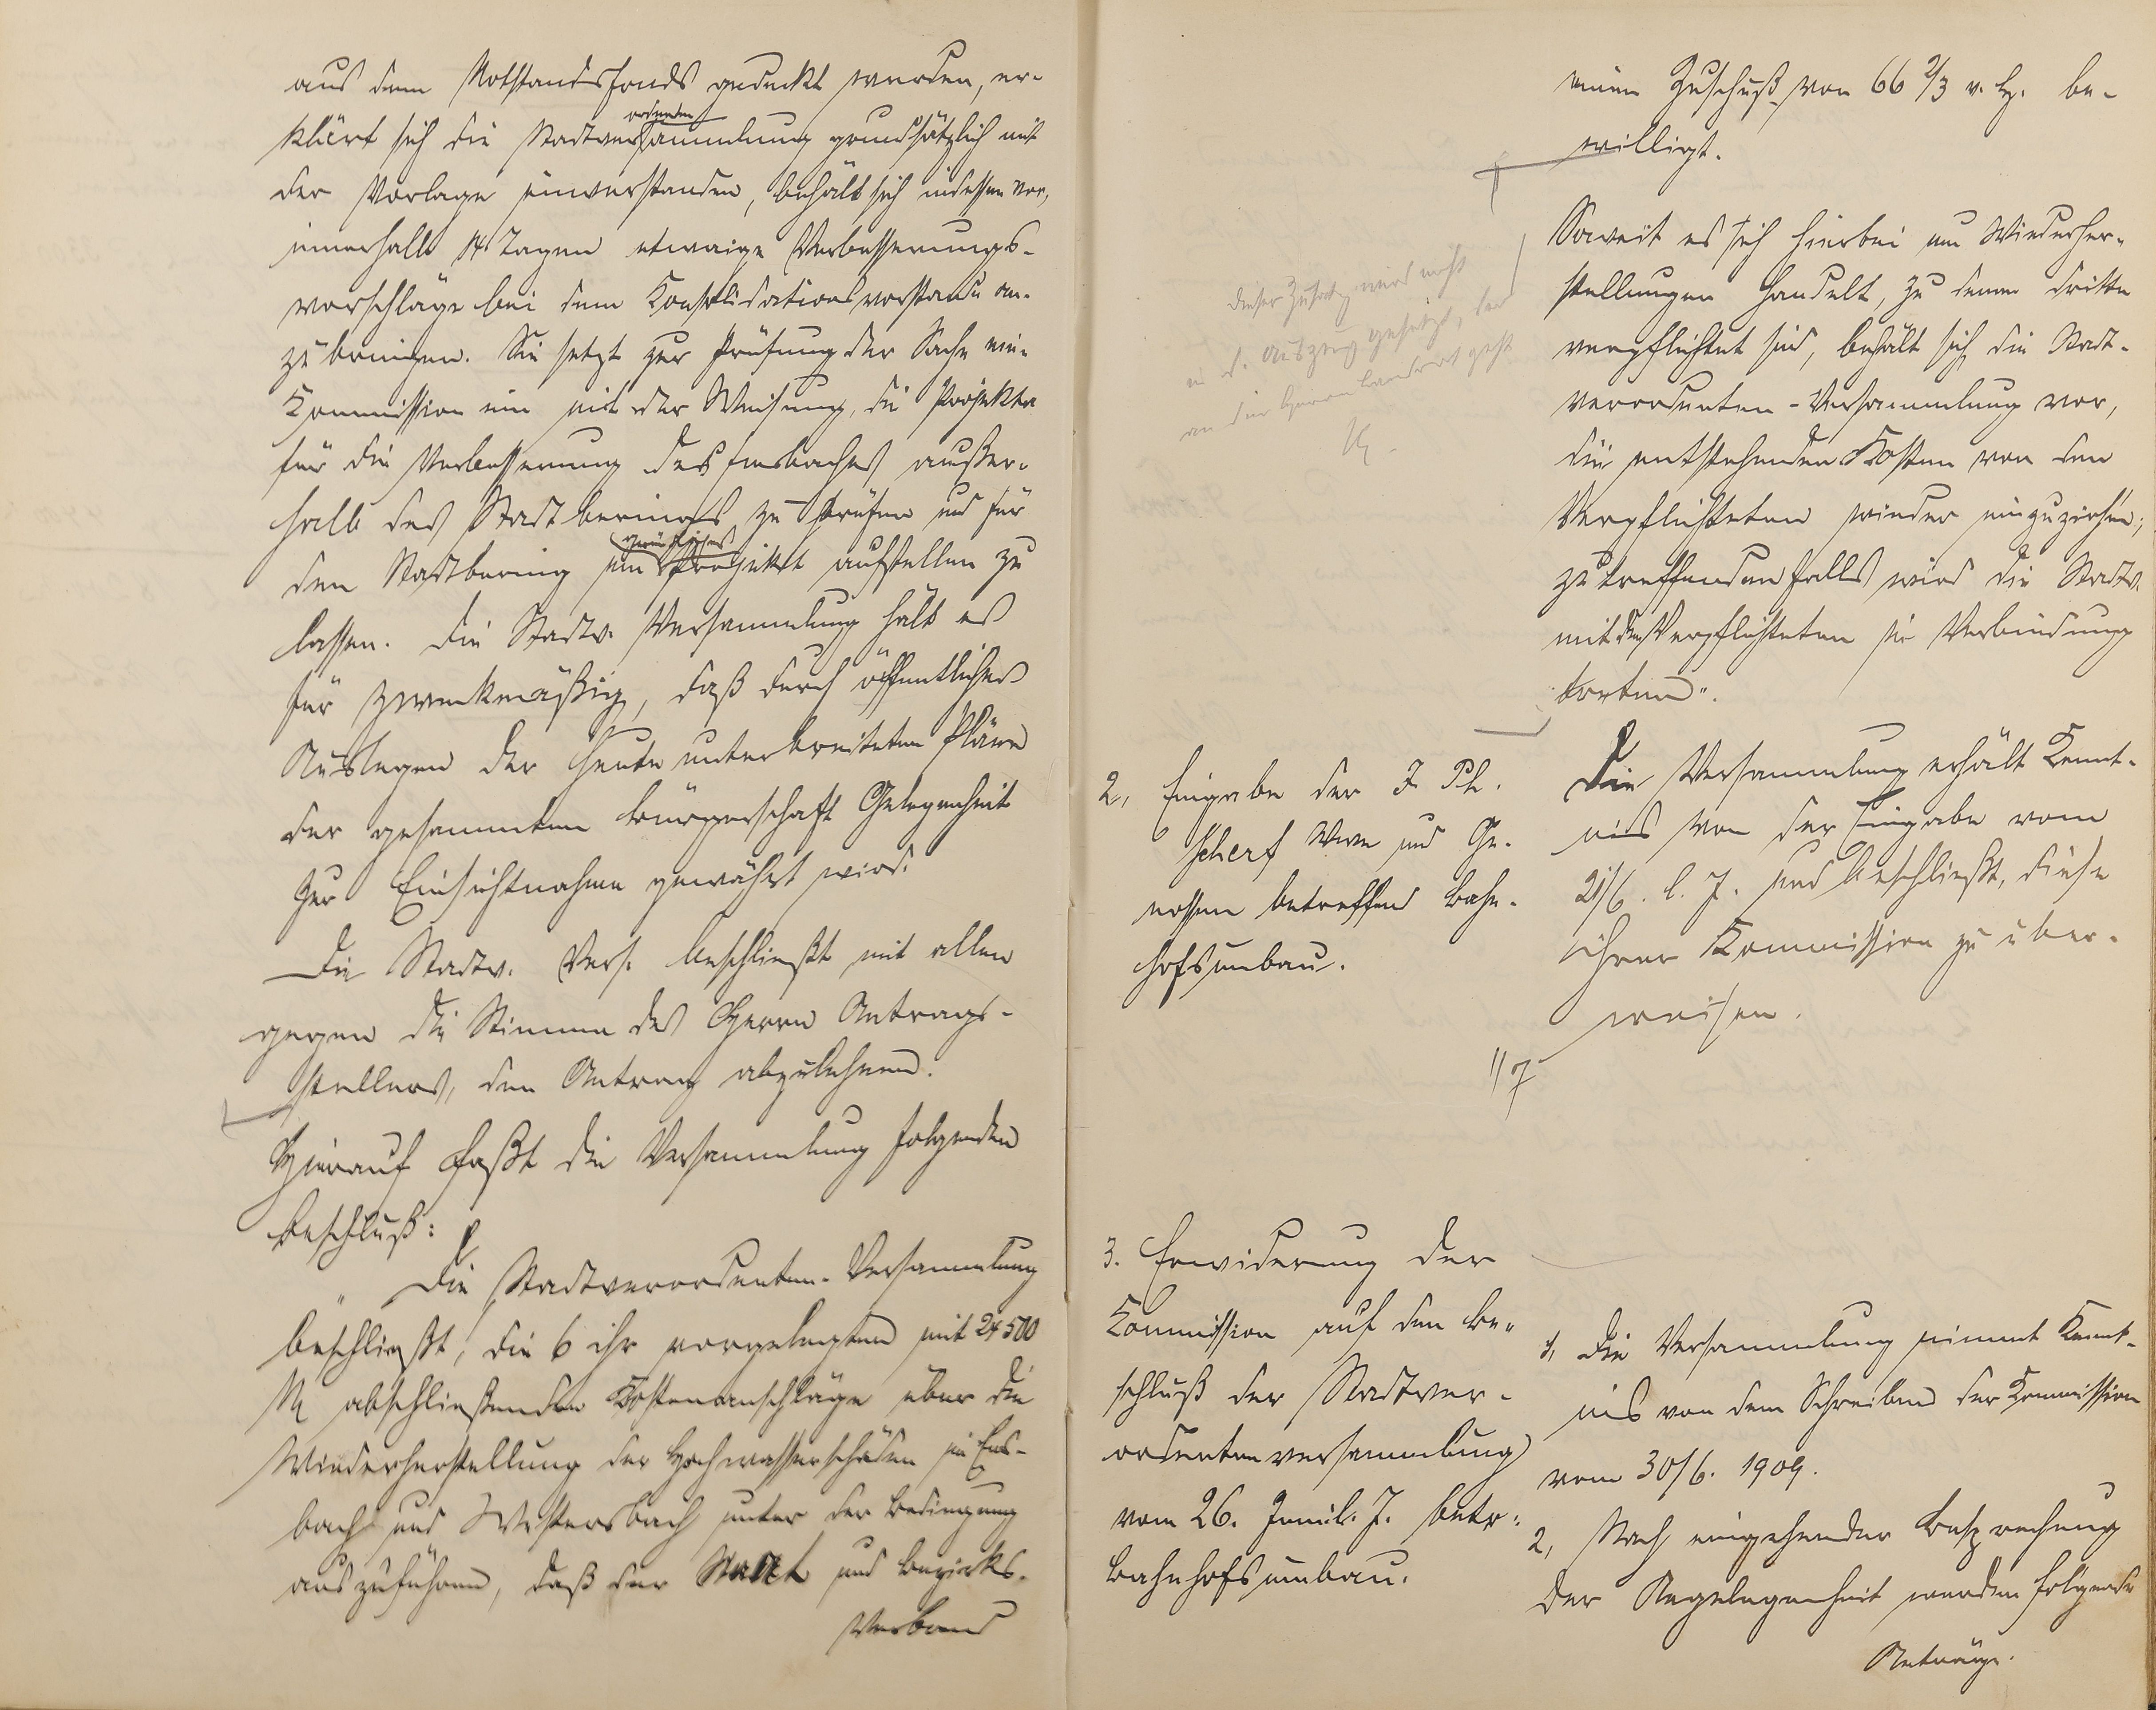 aus dem Notstandsfonds gedeckt werden, er-
klärt sich die Stadtverordnetenversammlung grundsätzlich mit
der Vorlage einverstanden, behält sich indessen vor,
innerhalb 14 Tagen etwaige Verbesserungs-
vorschläge bei dem Konsolidationsvorstande an-
zubringen. Sie setzt zur Prüfung der Sache eine
Kommission ein mit der Weisung, die Projekte
für die Verbesserung des Emsbaches außer-
halb des Stadtberings zu prüfen und für
den Stadtbering ein Projekt aufstellen zu
lassen. Die Stadtv. Versammlung hält es
für zweckmäßig, daß durch öffentliches
Auslegen der heute unterbreiteten Pläne
der gesammten Bürgerschaft Gelegenheit
zur Einsichtnahme gewährt wird.
Die Stadtv. Vers. beschließt mit allen
gegen die Stimme des Herrn Antrags-
stellers, den Antrag abzulehnen.
Hierauf faßt die Versammlung folgenden
Beschluß:
„Die Stadtverordneten-Versammlung
beschließt, die 6 ihr vorgelegten mit 24500
M abschließenden Kostenanschläge über die
Wiederherstellung der Hochwasserschäden in Ems-
bach und Westerbach unter der Bedingung
auszuführen, daß der Staat und Bezirks-
Verband
einen Zuschuß von 66 2/3 v. H. be-
willigt.
Soweit es sich hierbei um Wiederher-
stellungen handelt, zu denen dritte
verpflichtet sind, behält sich die Stadt-
verordneten-Versammlung vor,
die entstehenden Kosten von den
Verpflichteten wieder einzuziehen;
zutreffendenfalls wird die Stadtv.
mit den Verpflichteten in Verbindung
treten".
Dieser Zusatz wird nicht
in d. Auszug gesetzt, der
an den Herrn Landrat geht
2, Eingabe der J. Ph.
Scherf Wwe und Ge-
nossen betreffend Bahn-
hofsumbau.
Die Versammlung erhält Kennt-
nis von der Eingabe vom
21/6. l. J. und beschließt, diese
ihrer Kommission zu über-
weisen.
3. Erwiderung der
Kommission auf den Be-
schluß der Stadtver-
ordnetenversammlung
vom 26. Juni l. J. betr.
Bahnhofsumbau.
1, Die Versammlung nimmt Kennt-
nis von dem Schreiben der Kommission
vom 30/6. 1909.
2, Nach eingehender Besprechung
der Angelegenheit werden folgende
Anträge